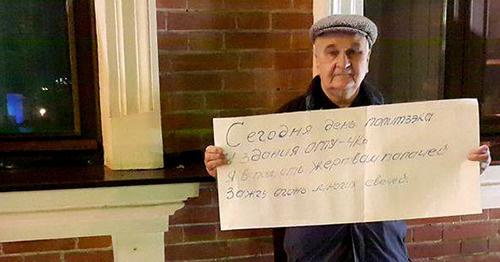 Сегодня день политзэка
У здания ОГПУ-ЧКа
Я в память жертвам палачей
Зажгу огонь многих свечей.